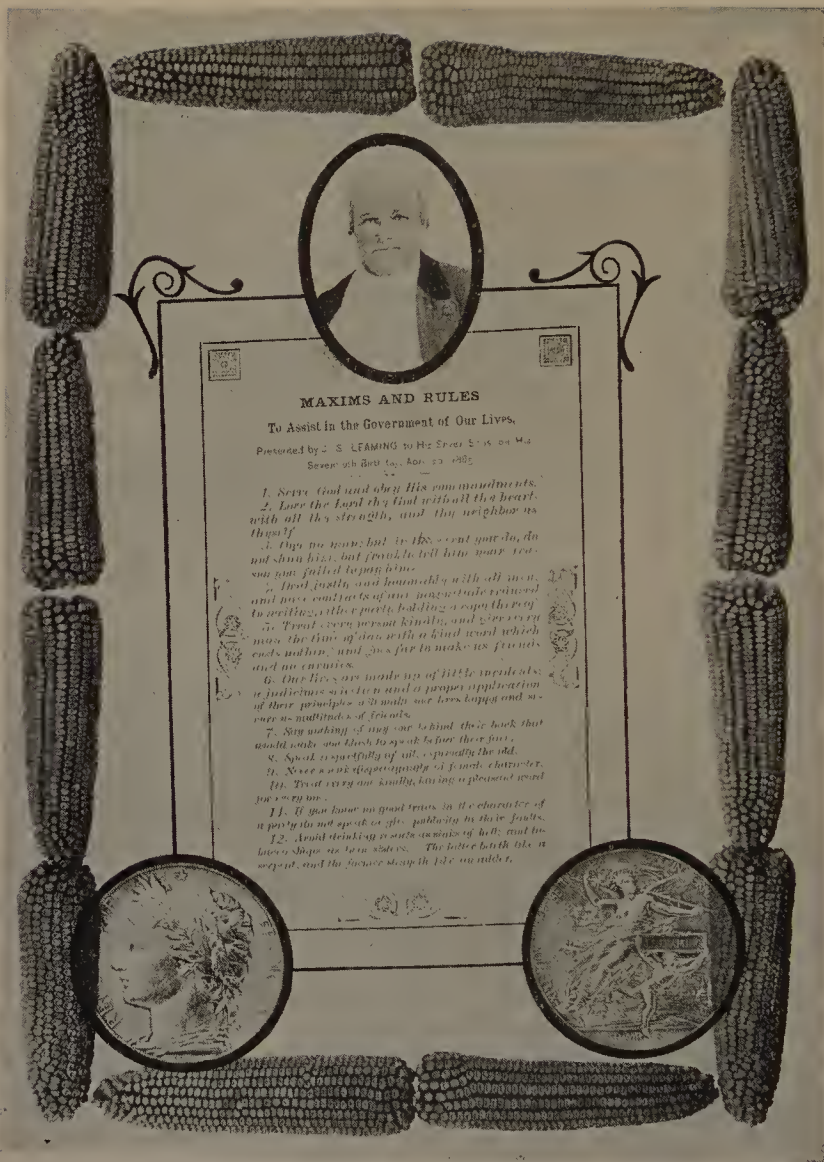 MAXIMS AND RULES
To Assist in the Government of Our Lives,
Presented by J. S. LEAMING to His Seven Sons on His
Birthday,
1. Serve God and obey His commandments.
2. Love the Lord thy God with all thy heart,
with all thy strength, and thy neighbor as
thyself
3. Owe no man; but in the event you do, do
not shun him, but frankly tell him your rea-
son you failed to pay him.
4. Deal justly and honorably with all men,
and have contracts of any magnitude reduced
to writing, either party holding a copy thereof
5. Treat every person kindly, and give every
man the time of day with a kind word which
costs nothing and goes far to make us friends
and no enemies.
6. Our lives are made up of little incidents;
a judicious selection and a proper application
of their principles will make our lives happy and se-
cure us multitudes of friends.
7. Say nothing of any one behind their back that
would make you blush to speak before their face.
8. Speak respectfully of all, especially the old.
9. Never speak disparagingly of female character.
10. Treat every one kindly, having a pleasant word
for every one.
11. If you know no good traits in the character of
a party do not speak or give publicity to their faults.
12. Avoid drinking as of hell; and
as twin sisters. The latter biteth like a
serpent, and the former stingeth like an adder.